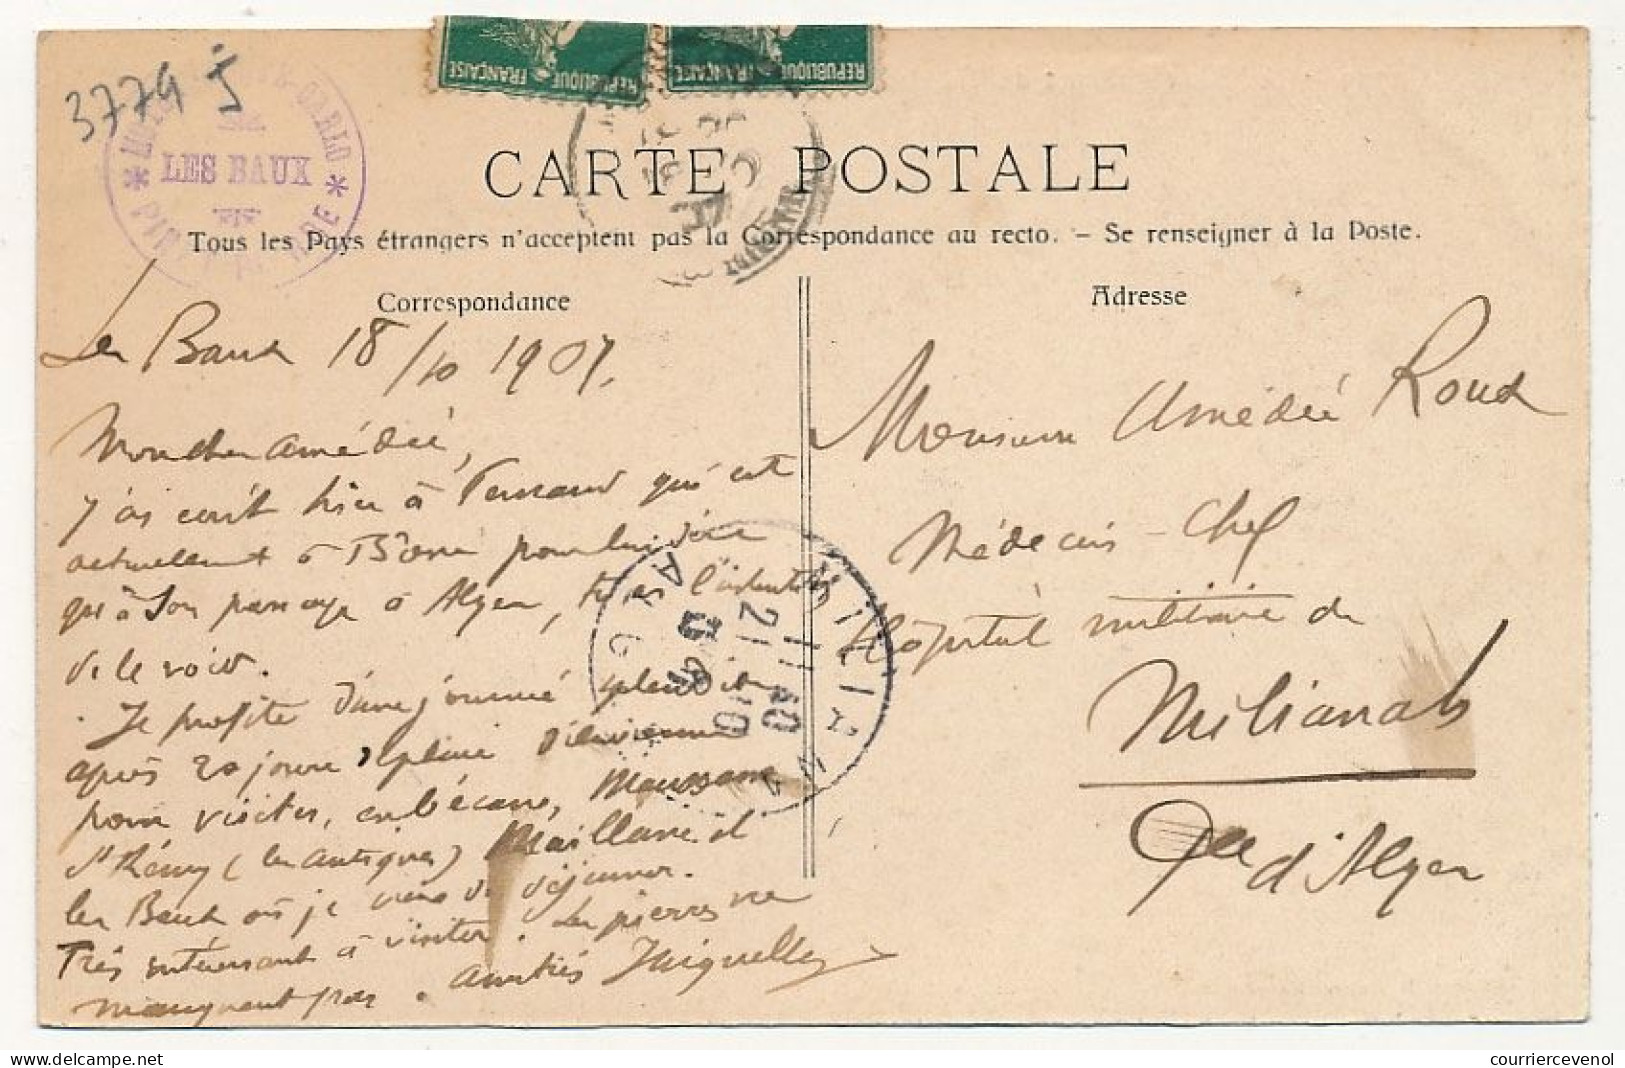 3779 J
LES BAUX
RÉPUBLIQUE FRANÇAISE
RÉPUBLIQUE FRANÇAISE
CARTE POSTALE
Tous les Pays étrangers n'acceptent pas la Correspondance au recto. - Se renseigner à la Poste.
Correspondance
Les Baux 18/10 1907.
Mon cher Amédée,
J'ai écrit hier à Fernand qui est
actuellement à Bône pour lui dire
qu'à son passage à Alger, tu as l'intention
de le voir.
Je profite d'une journée splendide
après 20 jours de pluie diluvienne
pour visiter, en bécane, Maussane
St Rémy (les antiques) Maillane et
les Baux où je viens de déjeuner.
Très intéressant à visiter. Les pierres ne
manquent pas. Amitiés
Adresse
Monsieur Amédée Roux
Médecin-Chef
Hôpital militaire de
Milianah
Pce d'Alger
MILIANA
ALGER
courriercevenol